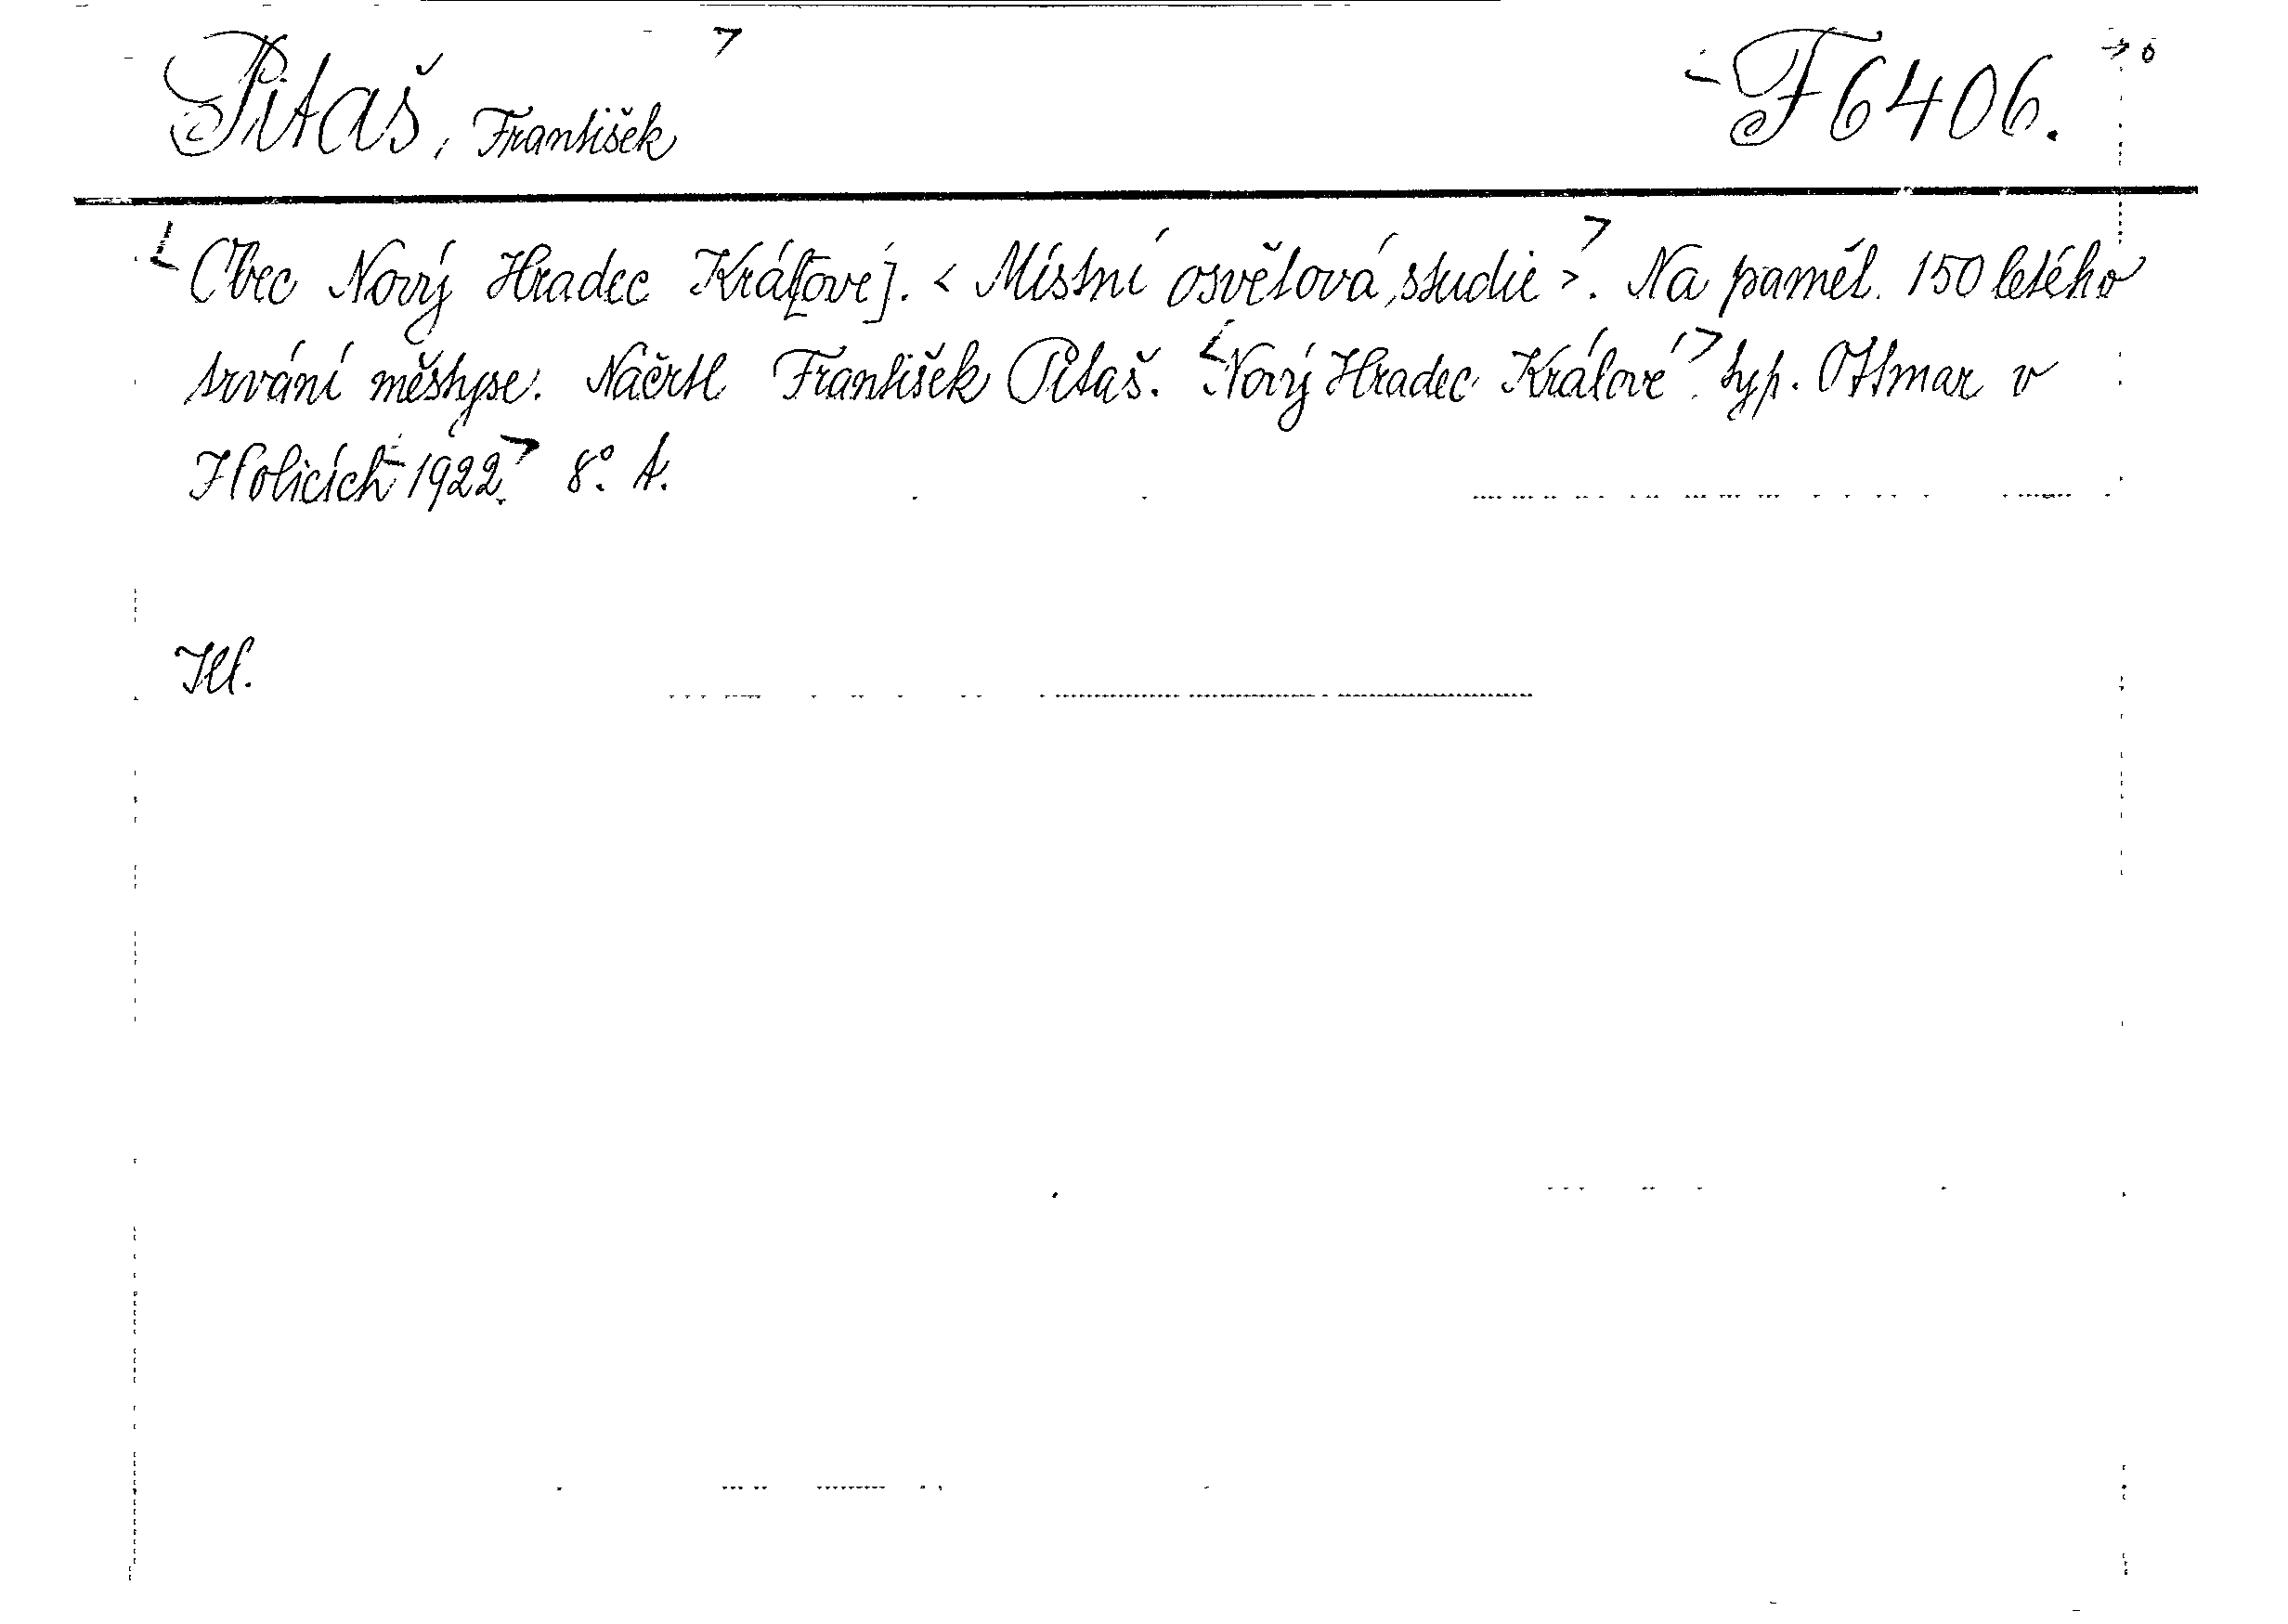 Pitaš, František F 6406.
Obec Nový Hradec Král[ové]. < Místní osvětová studie >. Na pamět. 150 letého
trvání městyse. Náčrtl František Pitaš. Nový Hradec Králové. typ. Ottmar v
Holicích 1922. 8°.
Hl.